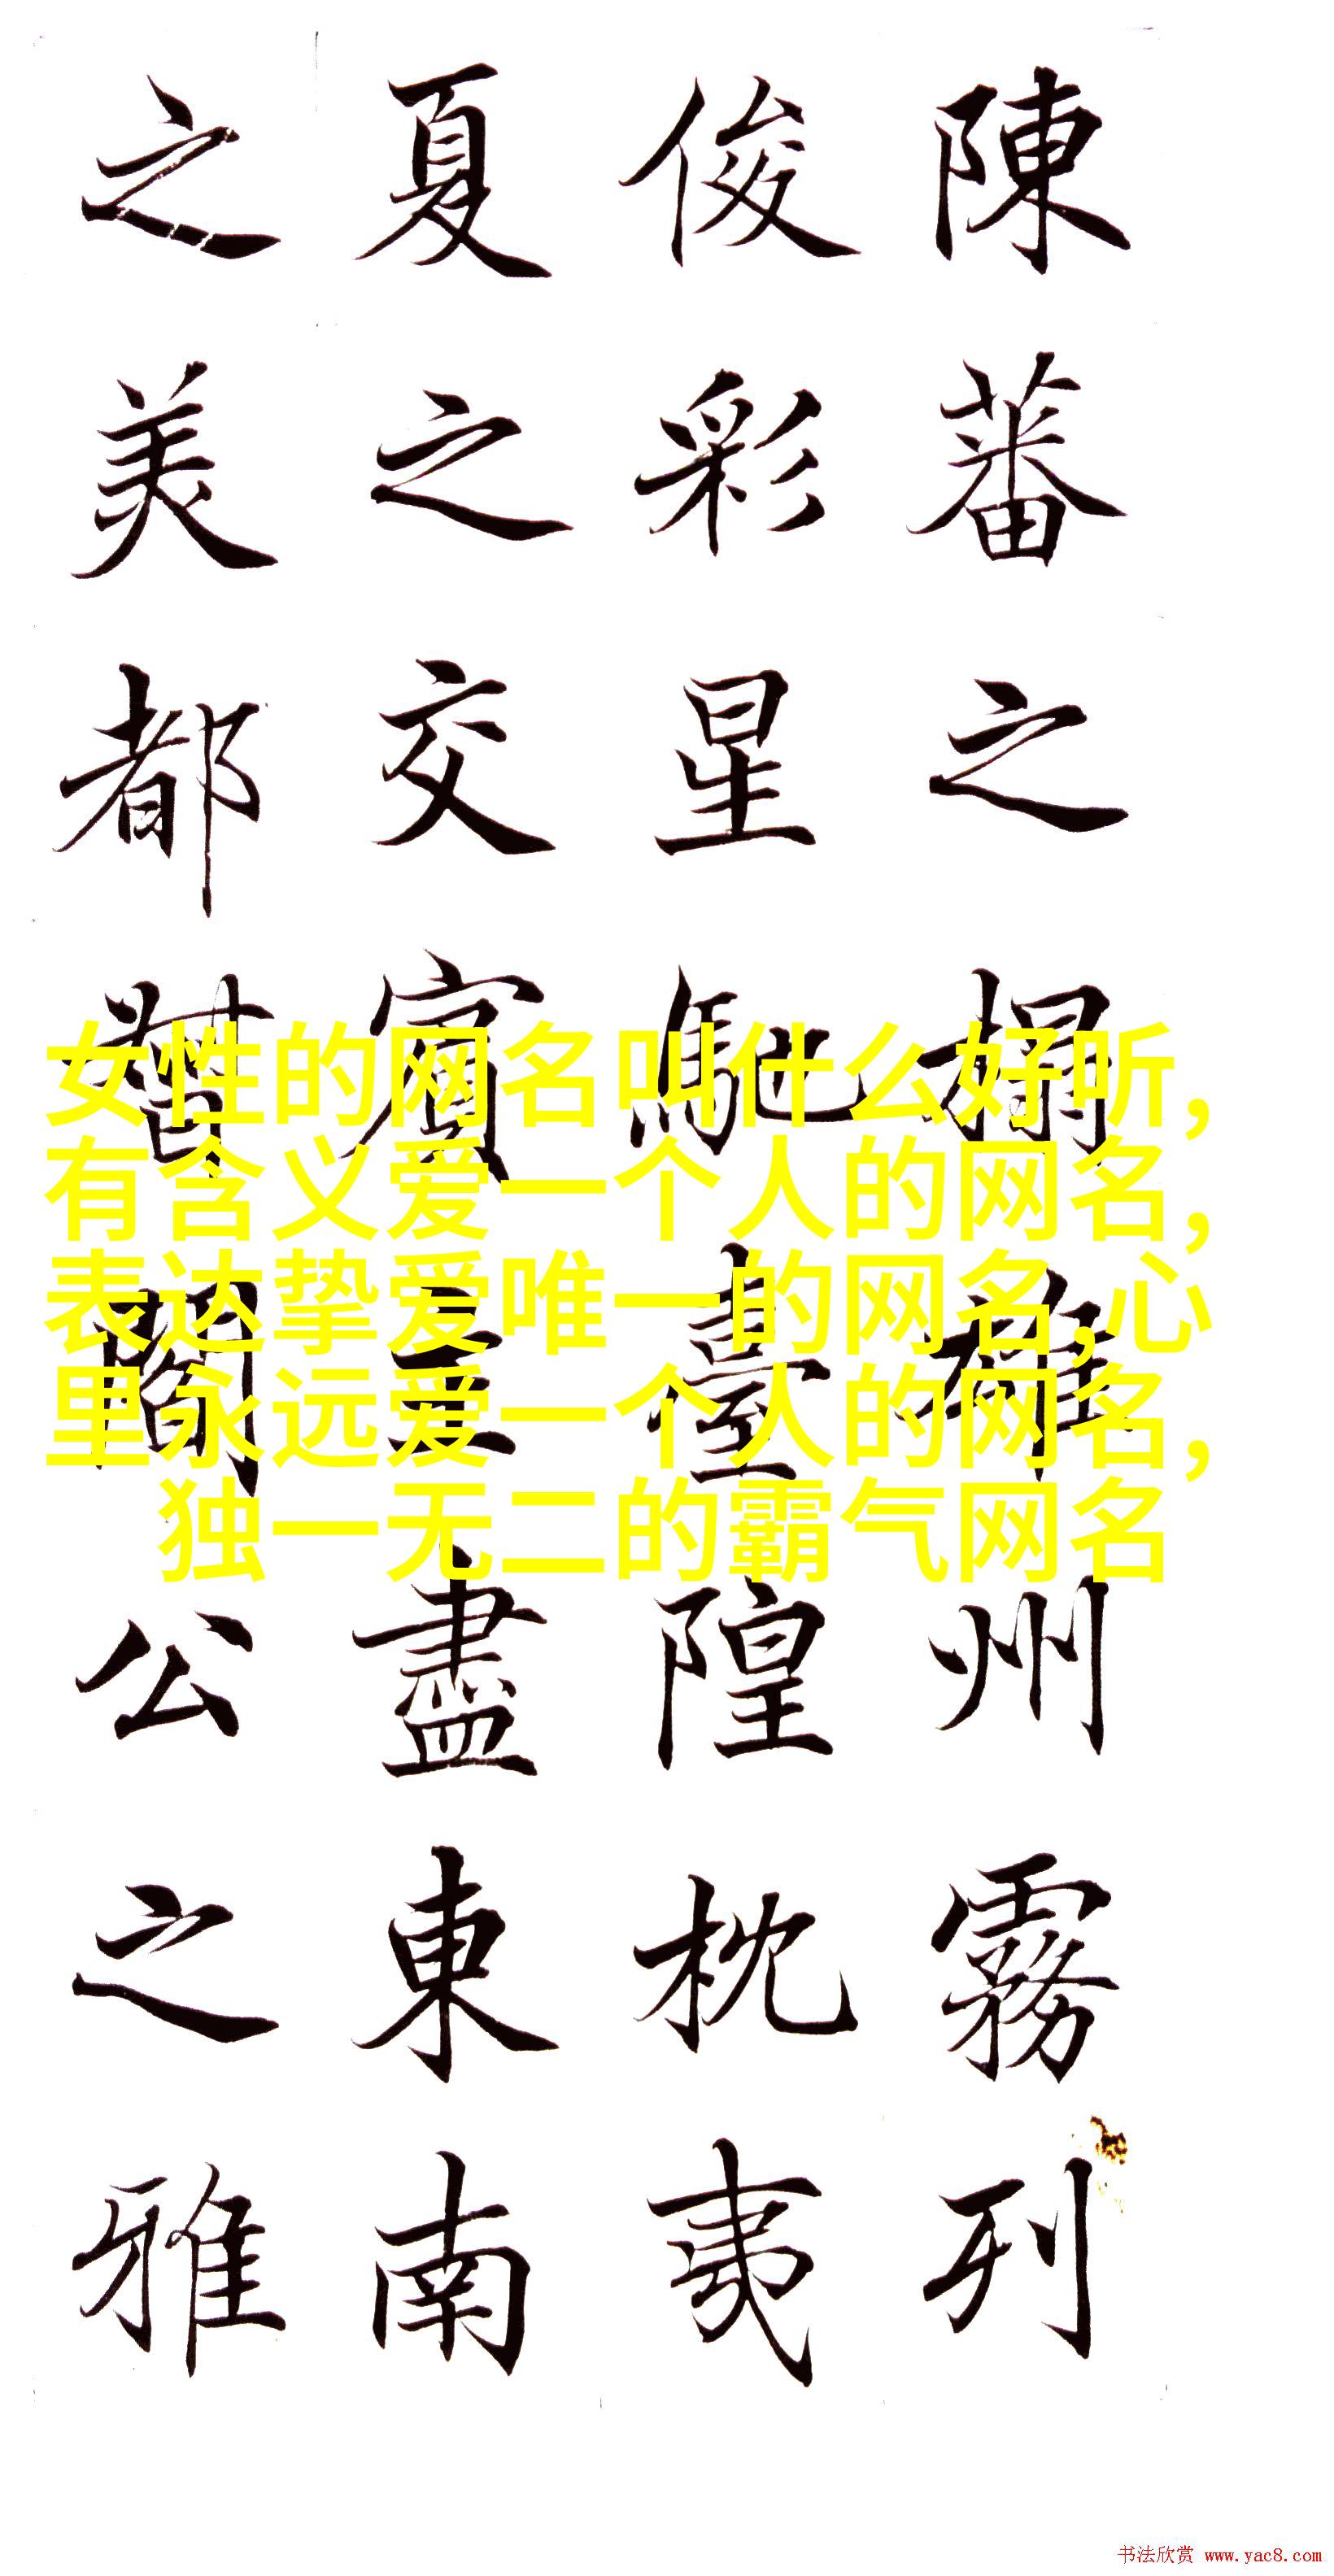 陳蕃之榻雄州霧列
俊彩星馳臺隍枕夷
夏之交賓主盡東南
之美都督閻公之雅
女性的网名叫什么好听，
有含义爱一个人的网名，
表达挚爱唯一的网名,心
里永远爱一个人的网名，
独一无二的霸气网名
书法欣赏 www.yac8.com